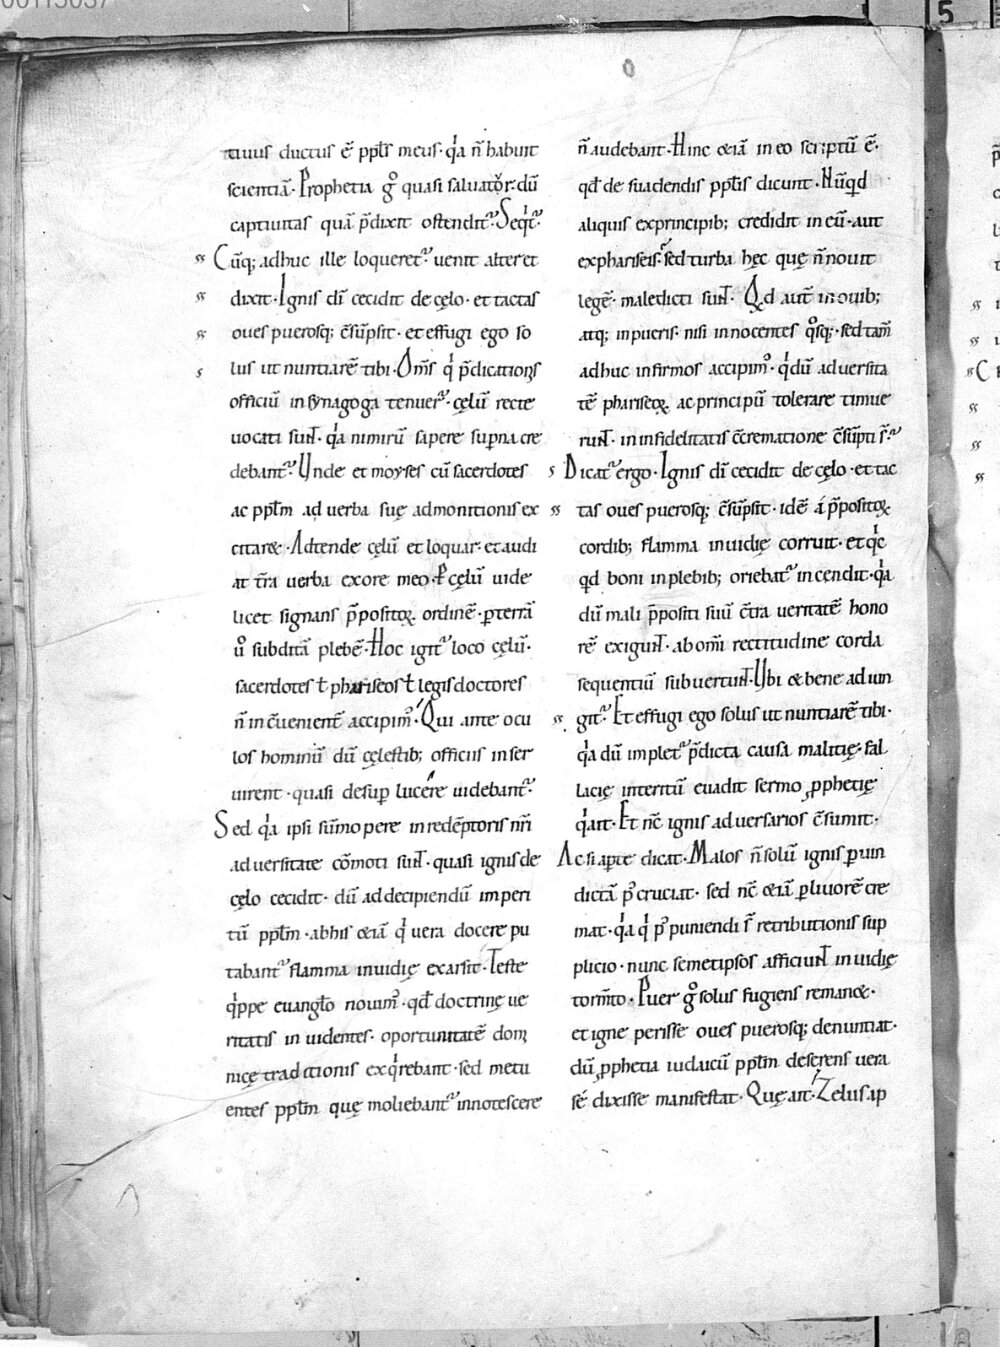 00113037
5
tiuus ductus ē ppl̄s meus· q̇a n̄ habuit
scientiā· Prophetia g̊ quasi saluator· dū
captiuitas quā p̄dixit ostendit᷑· Seqt᷑·
Cūq; adhuc ille loqueret᷑ uenit alter et
dixit· Ignis dī cecidit de cęlo· et tactas
oues puerosq; c̄sūpsit· et effugi ego so
lus ut nuntiarē tibi· Om̄s q̇ p̄dicationis
officiū in synagoga tenuer᷑· cęlū recte
uocati suꞃt· q̇a nimirū sapere supna cre
debant᷑· Unde et moyses cū sacerdotes
ac ppl̄m ad uerba suę admonitionis ex
citaret· Adtende cęlū et loquar· et audi
at t̄ra uerba ex ore meo· P cęlū uide
licet signans p̄positoꝝ ordinē· ꝑ terrā
ů subditā plebē· Hoc igit᷑ loco cęlū·
sacerdotes ł phariseos ł legis doctores
n̄ inc̄uenient̄ accipim᷒· Qui ante ocu
los hominū dū cęlestib; officiis inser
uirent· quasi desuꝑ lucere uidebant᷑·
Sed q̇a ipsi sūmopere in redēptoris nr̄i
aduersitate cōmoti sunt· quasi ignis de
cęlo cecidit· dū ad decipiendū imperi
tū ppl̄m· ab his &iā q̇ uera docere pu
tabant᷑ flamma inuidię exarsit· Teste
q̇ppe euangl̄o nouim᷒· qd̄ doctrinę ue
ritatis inuidentes· oportunitatē domi
nicę traditionis exq̇rebant· sed metu
entes ppl̄m quę moliebant᷑ innotescere
n̄ audebant· Hinc &iā in eo scriptū ē·
qd̄ de suadendis ppl̄is dicunt· Nūqd
aliquis ex principib; credidit in eū· aut
ex phariseis· sed turba hęc quę n̄ nouit
legē· maledicti sunt· Qd aut̄ in ouib;
atq; in pueris· nisi innocentes q̊sq;· sed tam̄
adhuc infirmos accipim᷒· q̇ dū aduersita
tē phariseoꝝ ac principū tolerare timue
runt· in infidelitatis c̄crematione c̄sūpti s̄·
Dicat᷑ ergo· Ignis dī cecidit de cęlo· et tac
tas oues puerosq; c̄sūpsit· idē i p̄positoꝝ
cordib; flamma inuidię corruit· et q̇c
qd boni in plebib; oriebat᷑ incendit· q̇a
dū mali p̄positi suū c̄tra ueritatē hono
rē exigunt· ab om̄i rectitudine corda
sequentiū subuertunt· Ubi & bene adiun
git᷑· Et effugi ego solus ut nuntiarē tibi·
q̇a dū implet᷑ p̄dicta causa malitię· fal
lacię interitū euadit sermo ꝓphetię
q̇ ait· Et nc̄ ignis aduersarios c̄sumit·
Ac si aꝑte dicat· Malos n̄ solū ignis ꝑ uin
dictā p᷒ cruciat· sed nc̄ &iā ꝑ liuorē cre
mat· q̇a q̇ p᷒ puniendi s̄ retributionis sup
plicio· nunc semetipsos afficiunt inuidię
torm̄to· Puer g̊ solus fugiens reman&·
et igne perisse oues puerosq; denuntiat·
dū ꝓphetia iudaicū ppl̄m deserens uera
sē dixisse manifestat· Quę ait· Zelus ap